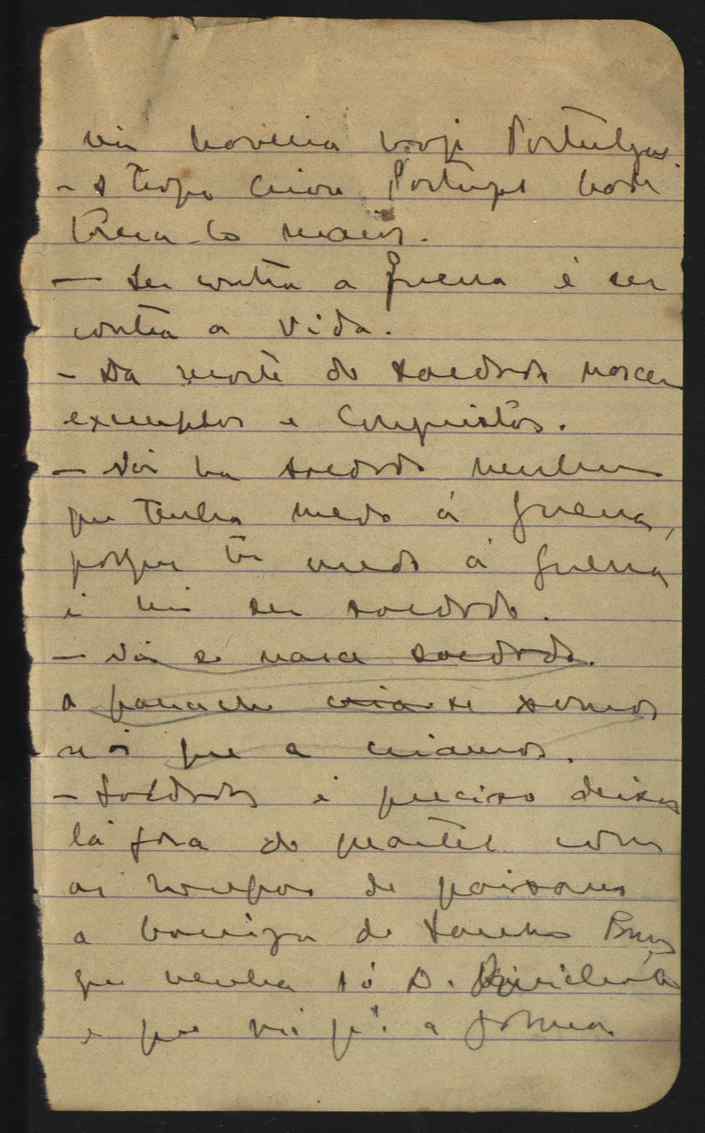 não haveria hoje Portugal.
- A tropa criou Portugal, há de
torna-lo maior.
- Ser contra a guerra é ser
contra a vida.
- Da morte do soldado nascem
exemplos e conquistas.
- Não ha soldado nenhum
que tenha medo á guerra,
porque ter medo á guerra
é não ser soldado.
- Não se nasce soldado.
a criamos
nós que a criamos.
- Soldados é preciso deixar
lá fora do quartel com
as roupas de paisano
a barriga de Sancho Pança
que venha só D.
e que vá p'. a